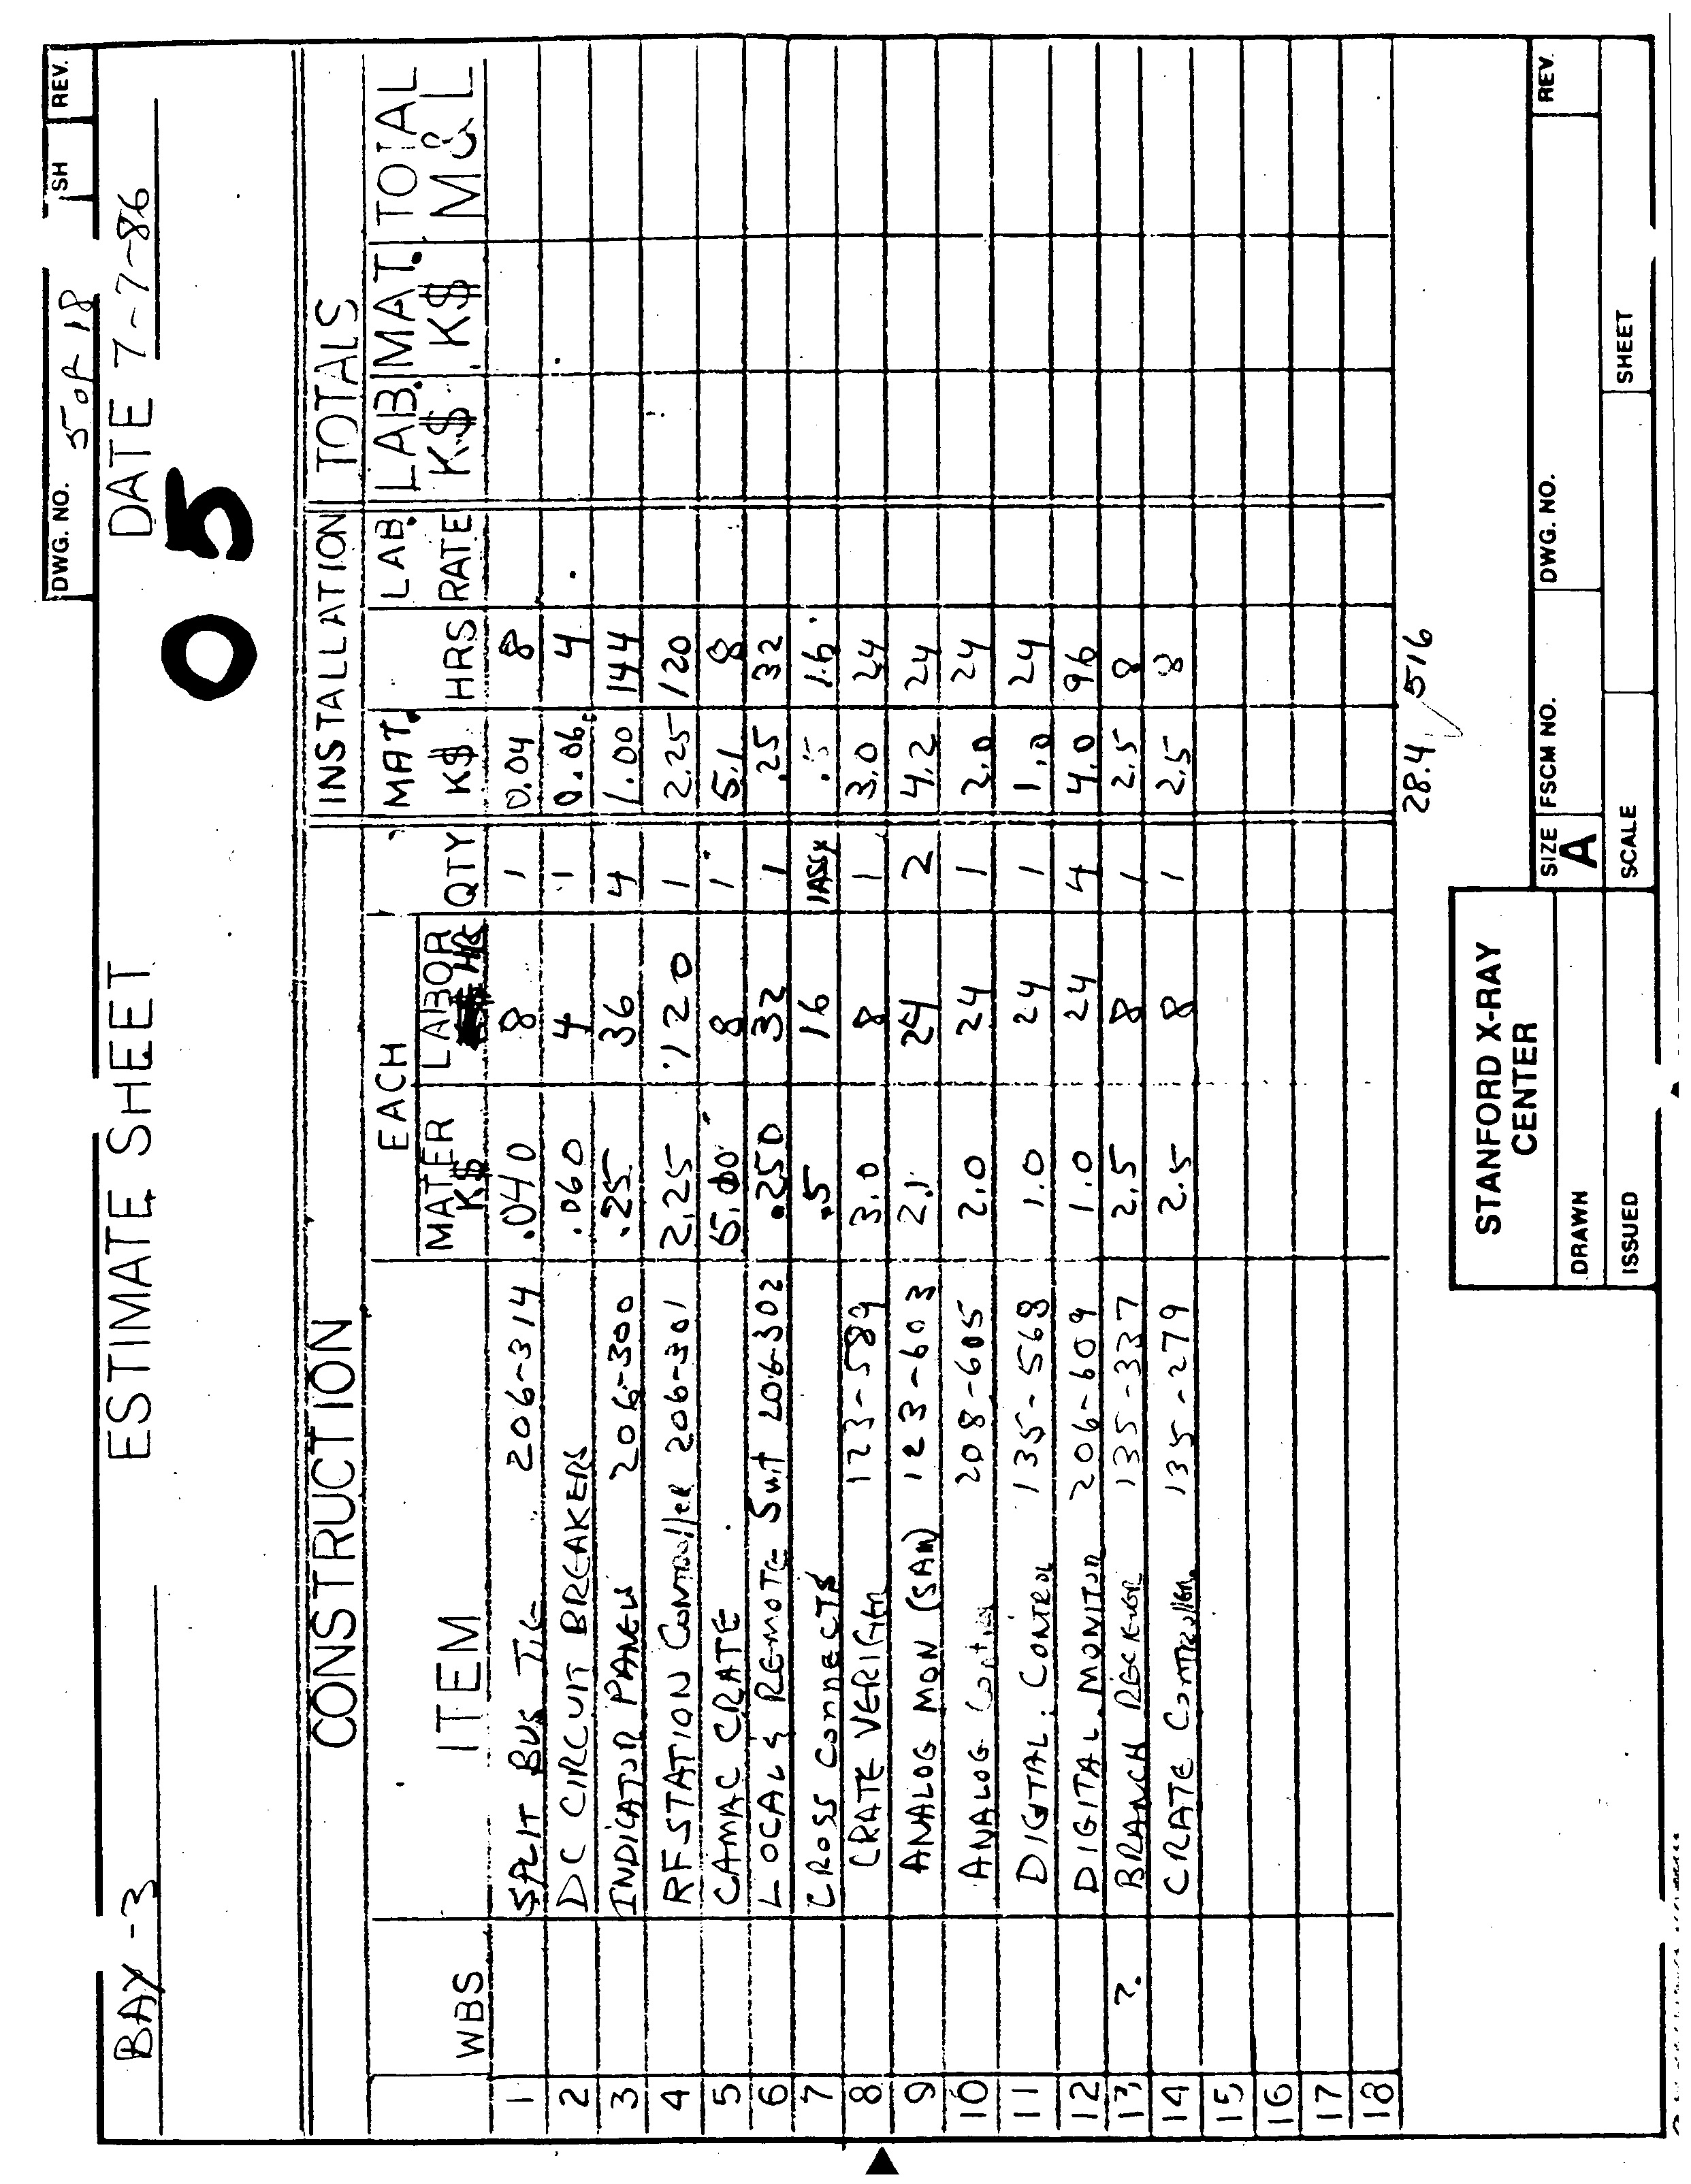 DWG. NO. 5 of 18 SH REV.
BAY-3 ESTIMATE SHEET DATE 7-7-86
05
CONSTRUCTION INSTALLATION TOTALS
EACH
WBS ITEM MATER K$ LABOR HR QTY MAT. K$ HRS LAB. RATE LAB. K$ MAT. K$ TOTAL M&L
1 SPLIT BUS TIE 206-314 .040 8 1 0.04 8
2 DC CIRCUIT BREAKERS .060 4 1 0.06 4
3 INDICATOR PANELS 206-300 .25 36 4 1.00 144
4 RF STATION Controller 206-301 2.25 120 1 2.25 120
5 CAMAC CRATE 5.00 8 1 5.1 8
6 LOCAL & REMOTE Swit 206-302 .250 32 1 .25 32
7 CROSS CONNECTS .5 16 1ASSY .5 16
8 CRATE VERIFIER 123-589 3.0 8 1 3.0 24
9 ANALOG MON (SAM) 123-603 2.1 24 2 4.2 24
10 ANALOG 208-605 2.0 24 1 2.0 24
11 DIGITAL CONTROL 135-568 1.0 24 1 1.0 24
12 DIGITAL MONITOR 206-609 1.0 24 4 4.0 96
13 ? BRANCH RECEIVER 135-337 2.5 8 1 2.5 8
14 CRATE Controller 135-279 2.5 8 1 2.5 8
15
16
17
18
28.4 516
STANFORD X-RAY
CENTER
SIZE A FSCM NO. DWG. NO. REV.
DRAWN
ISSUED SCALE SHEET